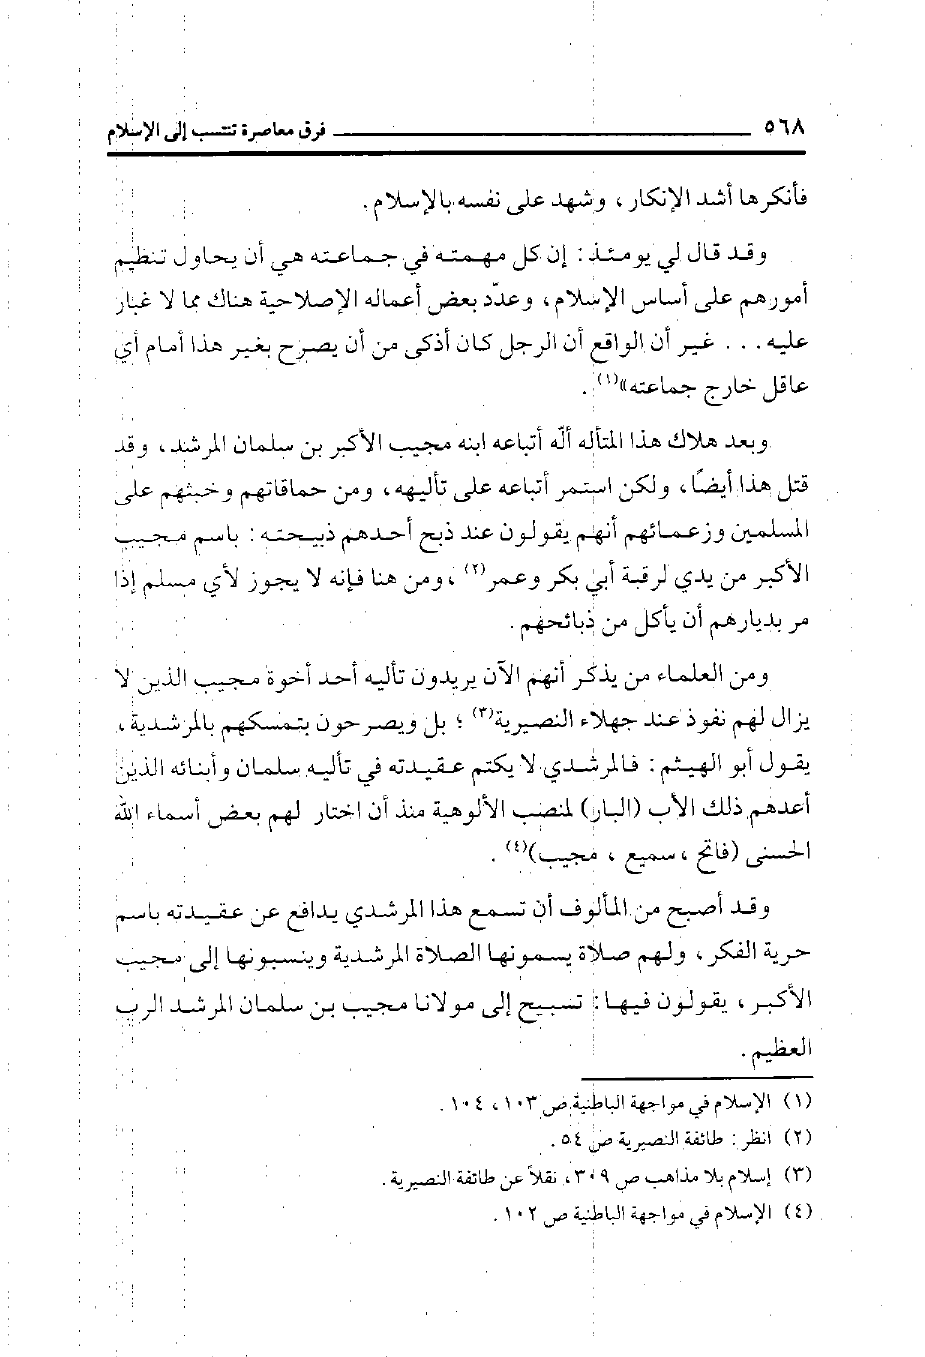 ٥٦٨ فرق معاصرة تنتسب إلى الإسلام
فأنكرها أشد الإنكار ، وشهد على نفسه بالإسلام .
وقد قال لي يومئذ : إن كل مهمته في جماعته هي أن يحاول تنظيم
أمورهم على أساس الإسلام ، وعدّد بعض أعماله الإصلاحية هناك مما لا غبار
عليه . . . غير أن الواقع أن الرجل كان أذكى من أن يصرح بغير هذا أمام أي
عاقل خارج جماعته»(١) .
وبعد هلاك هذا المتأله ألّه أتباعه ابنه مجيب الأكبر بن سلمان المرشد ، وقد
قتل هذا أيضاً ، ولكن استمر أتباعه على تأليهه ، ومن حماقاتهم وخبثهم على
المسلمين وزعمائهم أنهم يقولون عند ذبح أحدهم ذبيحته : باسم مجيب
الأكبر من يدي لرقبة أبي بكر وعمر(٢) ، ومن هنا فإنه لا يجوز لأي مسلم إذا
مر بديارهم أن يأكل من ذبائحهم .
ومن العلماء من يذكر أنهم الآن يريدون تأليه أحد أخوة مجيب الذين لا
يزال لهم نفوذ عند جهلاء النصيرية(٣) ؛ بل ويصرحون بتمسكهم بالمرشدية ،
يقول أبو الهيثم : فالمرشدي لا يكتم عقيدته في تأليه سلمان وأبنائه الذين
أعدهم ذلك الأب (البار) لمنصب الألوهية منذ أن اختار لهم بعض أسماء الله
الحسنى (فاتح ، سميع ، مجيب)(٤) .
وقد أصبح من المألوف أن تسمع هذا المرشدي يدافع عن عقيدته باسم
حرية الفكر ، ولهم صلاة يسمونها الصلاة المرشدية وينسبونها إلى مجيب
الأكبر ، يقولون فيها : تسبيح إلى مولانا مجيب بن سلمان المرشد الرب
العظيم .
(١) الإسلام في مواجهة الباطنية ص ١٠٣ ، ١٠٤ .
(٢) انظر : طائفة النصيرية ص ٥٤ .
(٣) إسلام بلا مذاهب ص ٣٠٩ ، نقلاً عن طائفة النصيرية .
(٤) الإسلام في مواجهة الباطنية ص ١٠٢ .